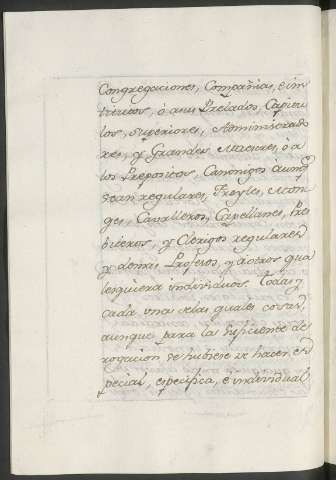 Congregaciones, Compañias, é ins
titutos, ó a sus Prelados, Capitu
los, Superiores, Administrado
res, y Grandes Maestres, ó a
los Prepositos, Canonigos aunq
sean regulares, Freyles, Mon
ges, Cavalleros, Capellanes, Pres
biteros, y Clerigos regulares,
y demas Profesos, y a otros qua
lesquiera individuos. Todas, y
cada una de las quales cosas,
aunque para la suficiente de
rogacion se hubiese de hacer es
pecial, especifica, é individual